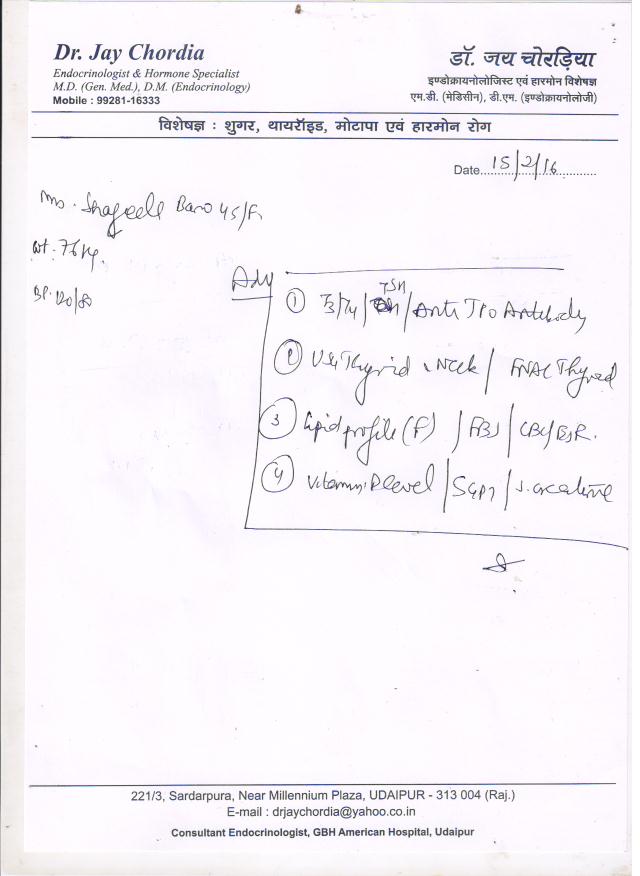 Dr. Jay Chordia
Endocrinologist & Hormone Specialist
M.D. (Gen. Med.), D.M. (Endocrinology)
Mobile : 99281-16333
डॉ. जय चोरड़िया
इण्डोक्रायनोलोजिस्ट एवं हारमोन विशेषज्ञ
एम.डी. (मेडिसीन), डी.एम. (इण्डोक्रायनोलॉजी)
विशेषज्ञ : शुगर, थायरॉइड, मोटापा एवं हारमोन रोग
Date 15/2/16
Bano 45/F
wt. 76 kg.
BP. 120/80
Adv
① T3/T4/TSH/Anti TPO Antibody
② USG Thyroid & Neck / FNAC Thyroid
③ Lipid profile (F) / FBS / CBC/ESR.
④ Vitamin D level / SGPT / S. creatinine
221/3, Sardarpura, Near Millennium Plaza, UDAIPUR - 313 004 (Raj.)
E-mail : drjaychordia@yahoo.co.in
Consultant Endocrinologist, GBH American Hospital, Udaipur